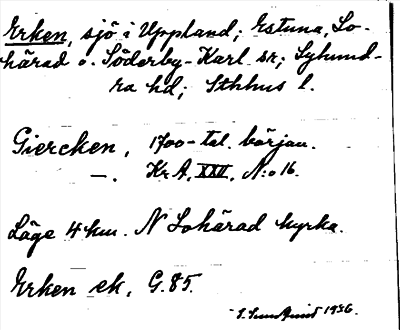 Erken, sjö i Uppland; Estuna, Lo-
härad o. Söderby-Karl sr; Lyhund-
ra hd; Sthlms l.
Giercken, 1700-tal. början.
—. Kr A, XXII, N:o 16.
Läge 4 km. N Lohärad kyrka.
Erken ek, G. 85.
1936.